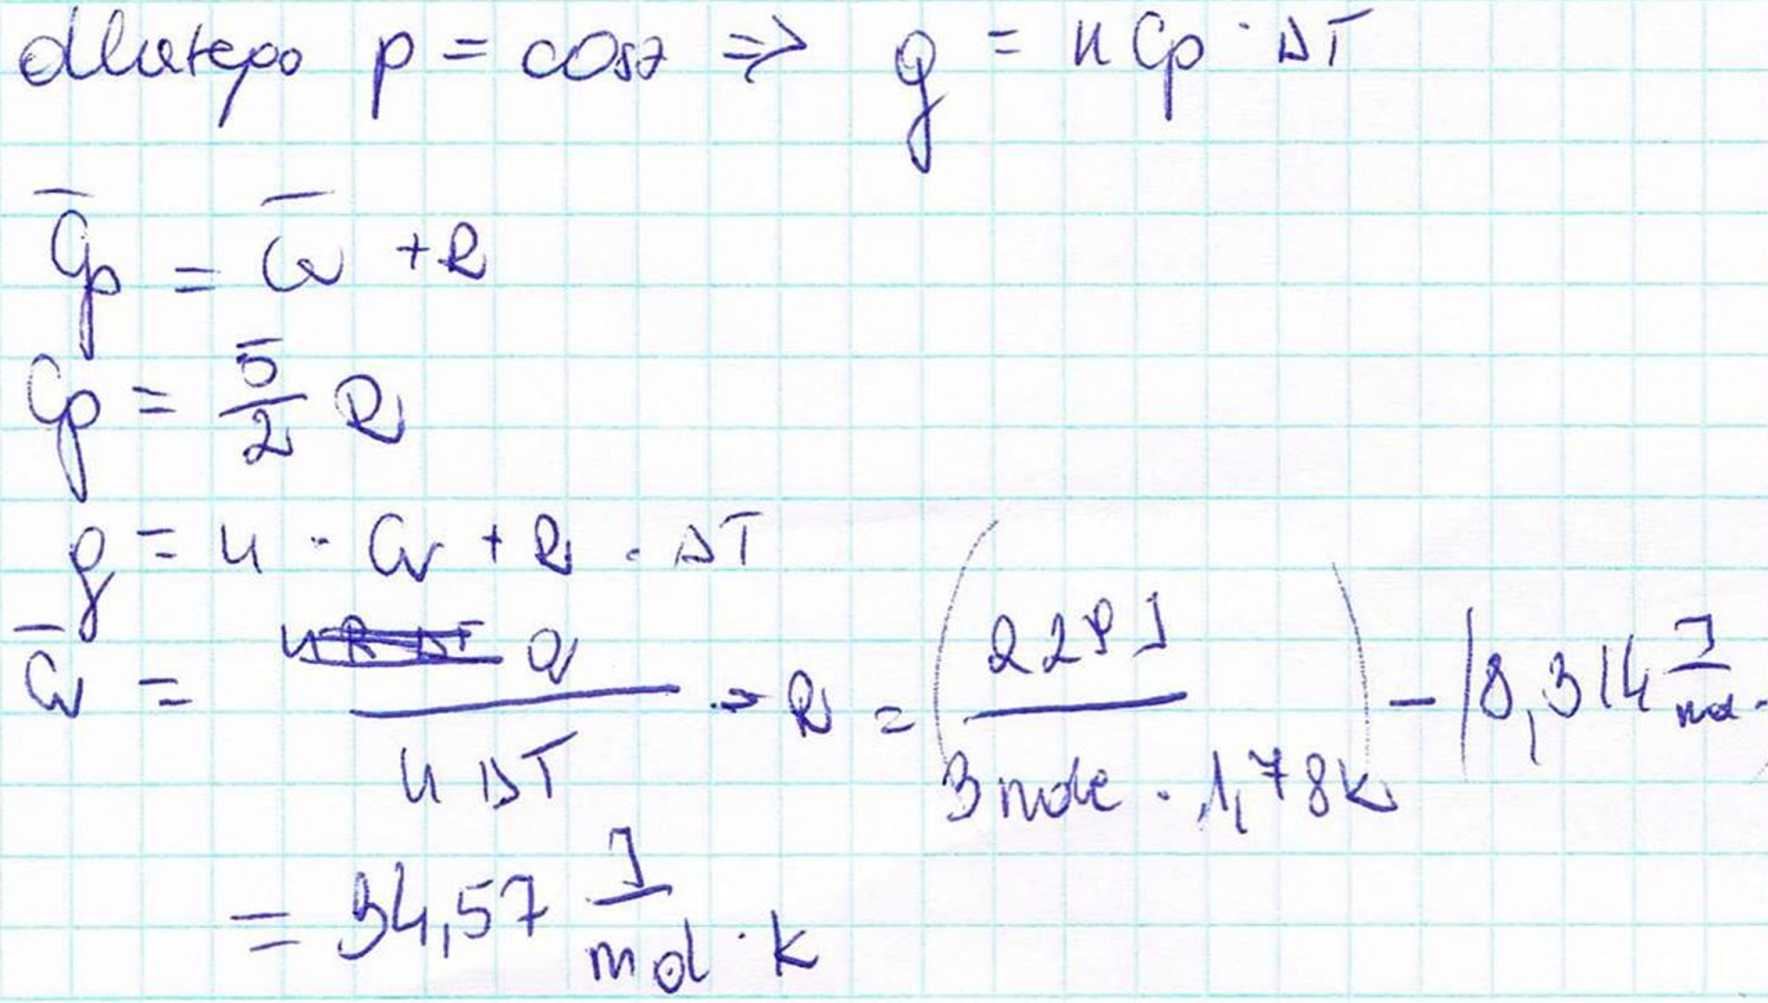 dlatego p = const => q = n Cp · ΔT
C̄p = C̄v + R
Cp = 5/2 R
q = n · Cv + R · ΔT
C̄v = Q / n ΔT - R = (229 J / 3 mole · 1,78 K) - (8,314 J / mol ·
= 34,57 J / mol · K